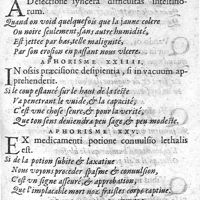 A Detectione syncera difficultas intestino-
rum.
Quand on void quelquesfois que la jaune colere
Ou noire seulement, sans autre humidité,
Est jettee par bas, telle malignité,
Par son erosion en passant nous vlcere.
APHORISME XXIIII.
IN ossis præcisione desipientia, si in vacuum ap
prehenderit.
Si le coup estant sur le haut de la teste
Va penetrant le vuide, & la capacité,
C'est vne chose seure, & pour la verité,
Que ton sens deviendra peu sage, & peu modeste.
APHORISME XXV.
EX medicamenti potione conuulsio lethalis
est.
Si de la potion subite & laxatiue
Nous voyons proceder spasme & conuulsion,
C'est vn signe asseuré, & approbation,
Que l'implacable mort nos fraisles corps captiue.